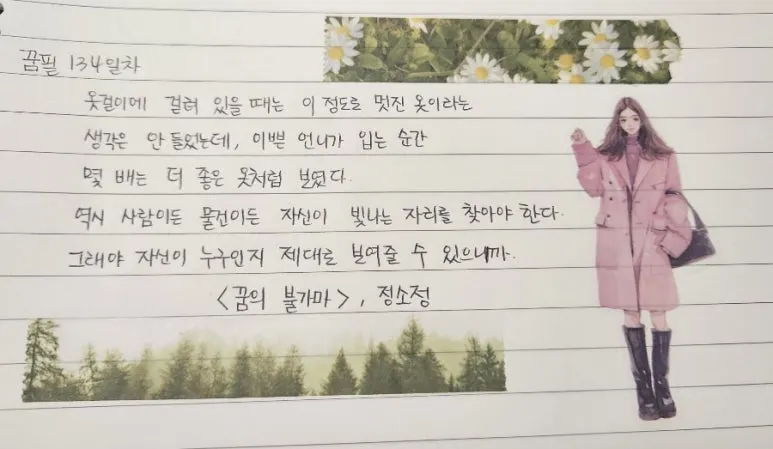 꿈필 134일차
옷걸이에 걸려 있을 때는 이 정도로 멋진 옷이라는
생각은 안 들었는데, 이쁜 언니가 입는 순간
몇 배는 더 좋은 옷처럼 보였다.
역시 사람이든 물건이든 자신이 빛나는 자리를 찾아야 한다.
그래야 자신이 누구인지 제대로 보여줄 수 있으니까.
<꿈의 불가마>, 정소정